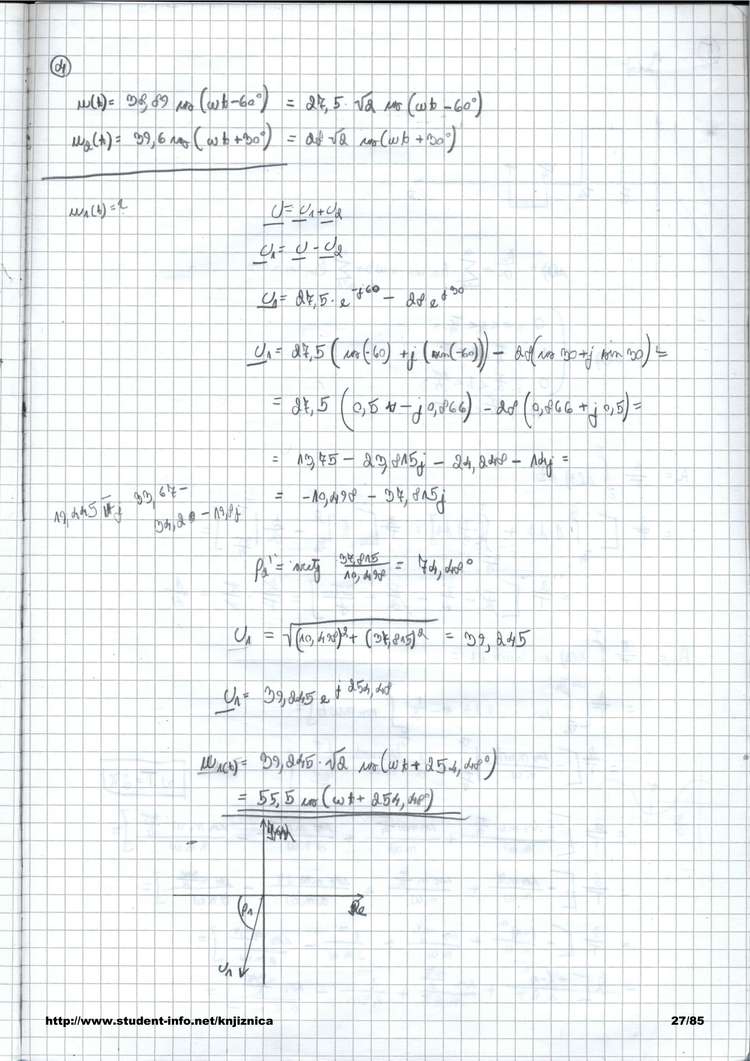 d)
u(t) = 38,89 cos(ωt - 60°) = 27,5·√2 cos(ωt - 60°)
u₂(t) = 39,6 cos(ωt + 30°) = 28 √2 cos(ωt + 30°)
u₁(t) = ?
U = U₁ + U₂
U₁ = U - U₂
U₁ = 27,5 · e^-j60 - 28 e^j30
U₁ = 27,5 (cos(-60) + j (sin(-60))) - 28 (cos 30 + j sin 30) =
= 27,5 (0,5 - j 0,866) - 28 (0,866 + j 0,5) =
= 13,75 - 23,815j - 24,248 - 14j =
= -10,498 - 37,815j
19,445 j 33,67 -
34,2 - 19,8j
= arctg 37,815/10,498 = 74,48°
U₁ = √(10,498)² + (37,815)² = 39,245
U₁ = 39,245 e^j 254,48
u₁(t) = 39,245 · √2 cos(ωt + 254,48°)
= 55,5 cos(ωt + 254,48°)
Im
Re
U₁
http://www.student-info.net/knjiznica 27/85